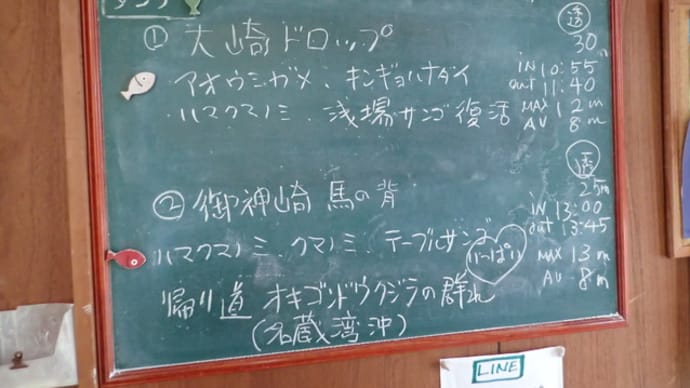 ① 大崎ドロップ
アオウミガメ、キンギョハナダイ
ハマクマノミ、浅場サンゴ復活
透
30m
IN 10:55
out 11:40
MAX 12m
AV 8m
② 御神崎 馬の背
ハマクマノミ、クマノミ、テーブルサンゴ
いっぱい
帰り道 オキゴンドウクジラの群れ
(名蔵湾沖)
透
25m
IN 13:00
out 13:45
MAX 13m
AV 8m
LINE